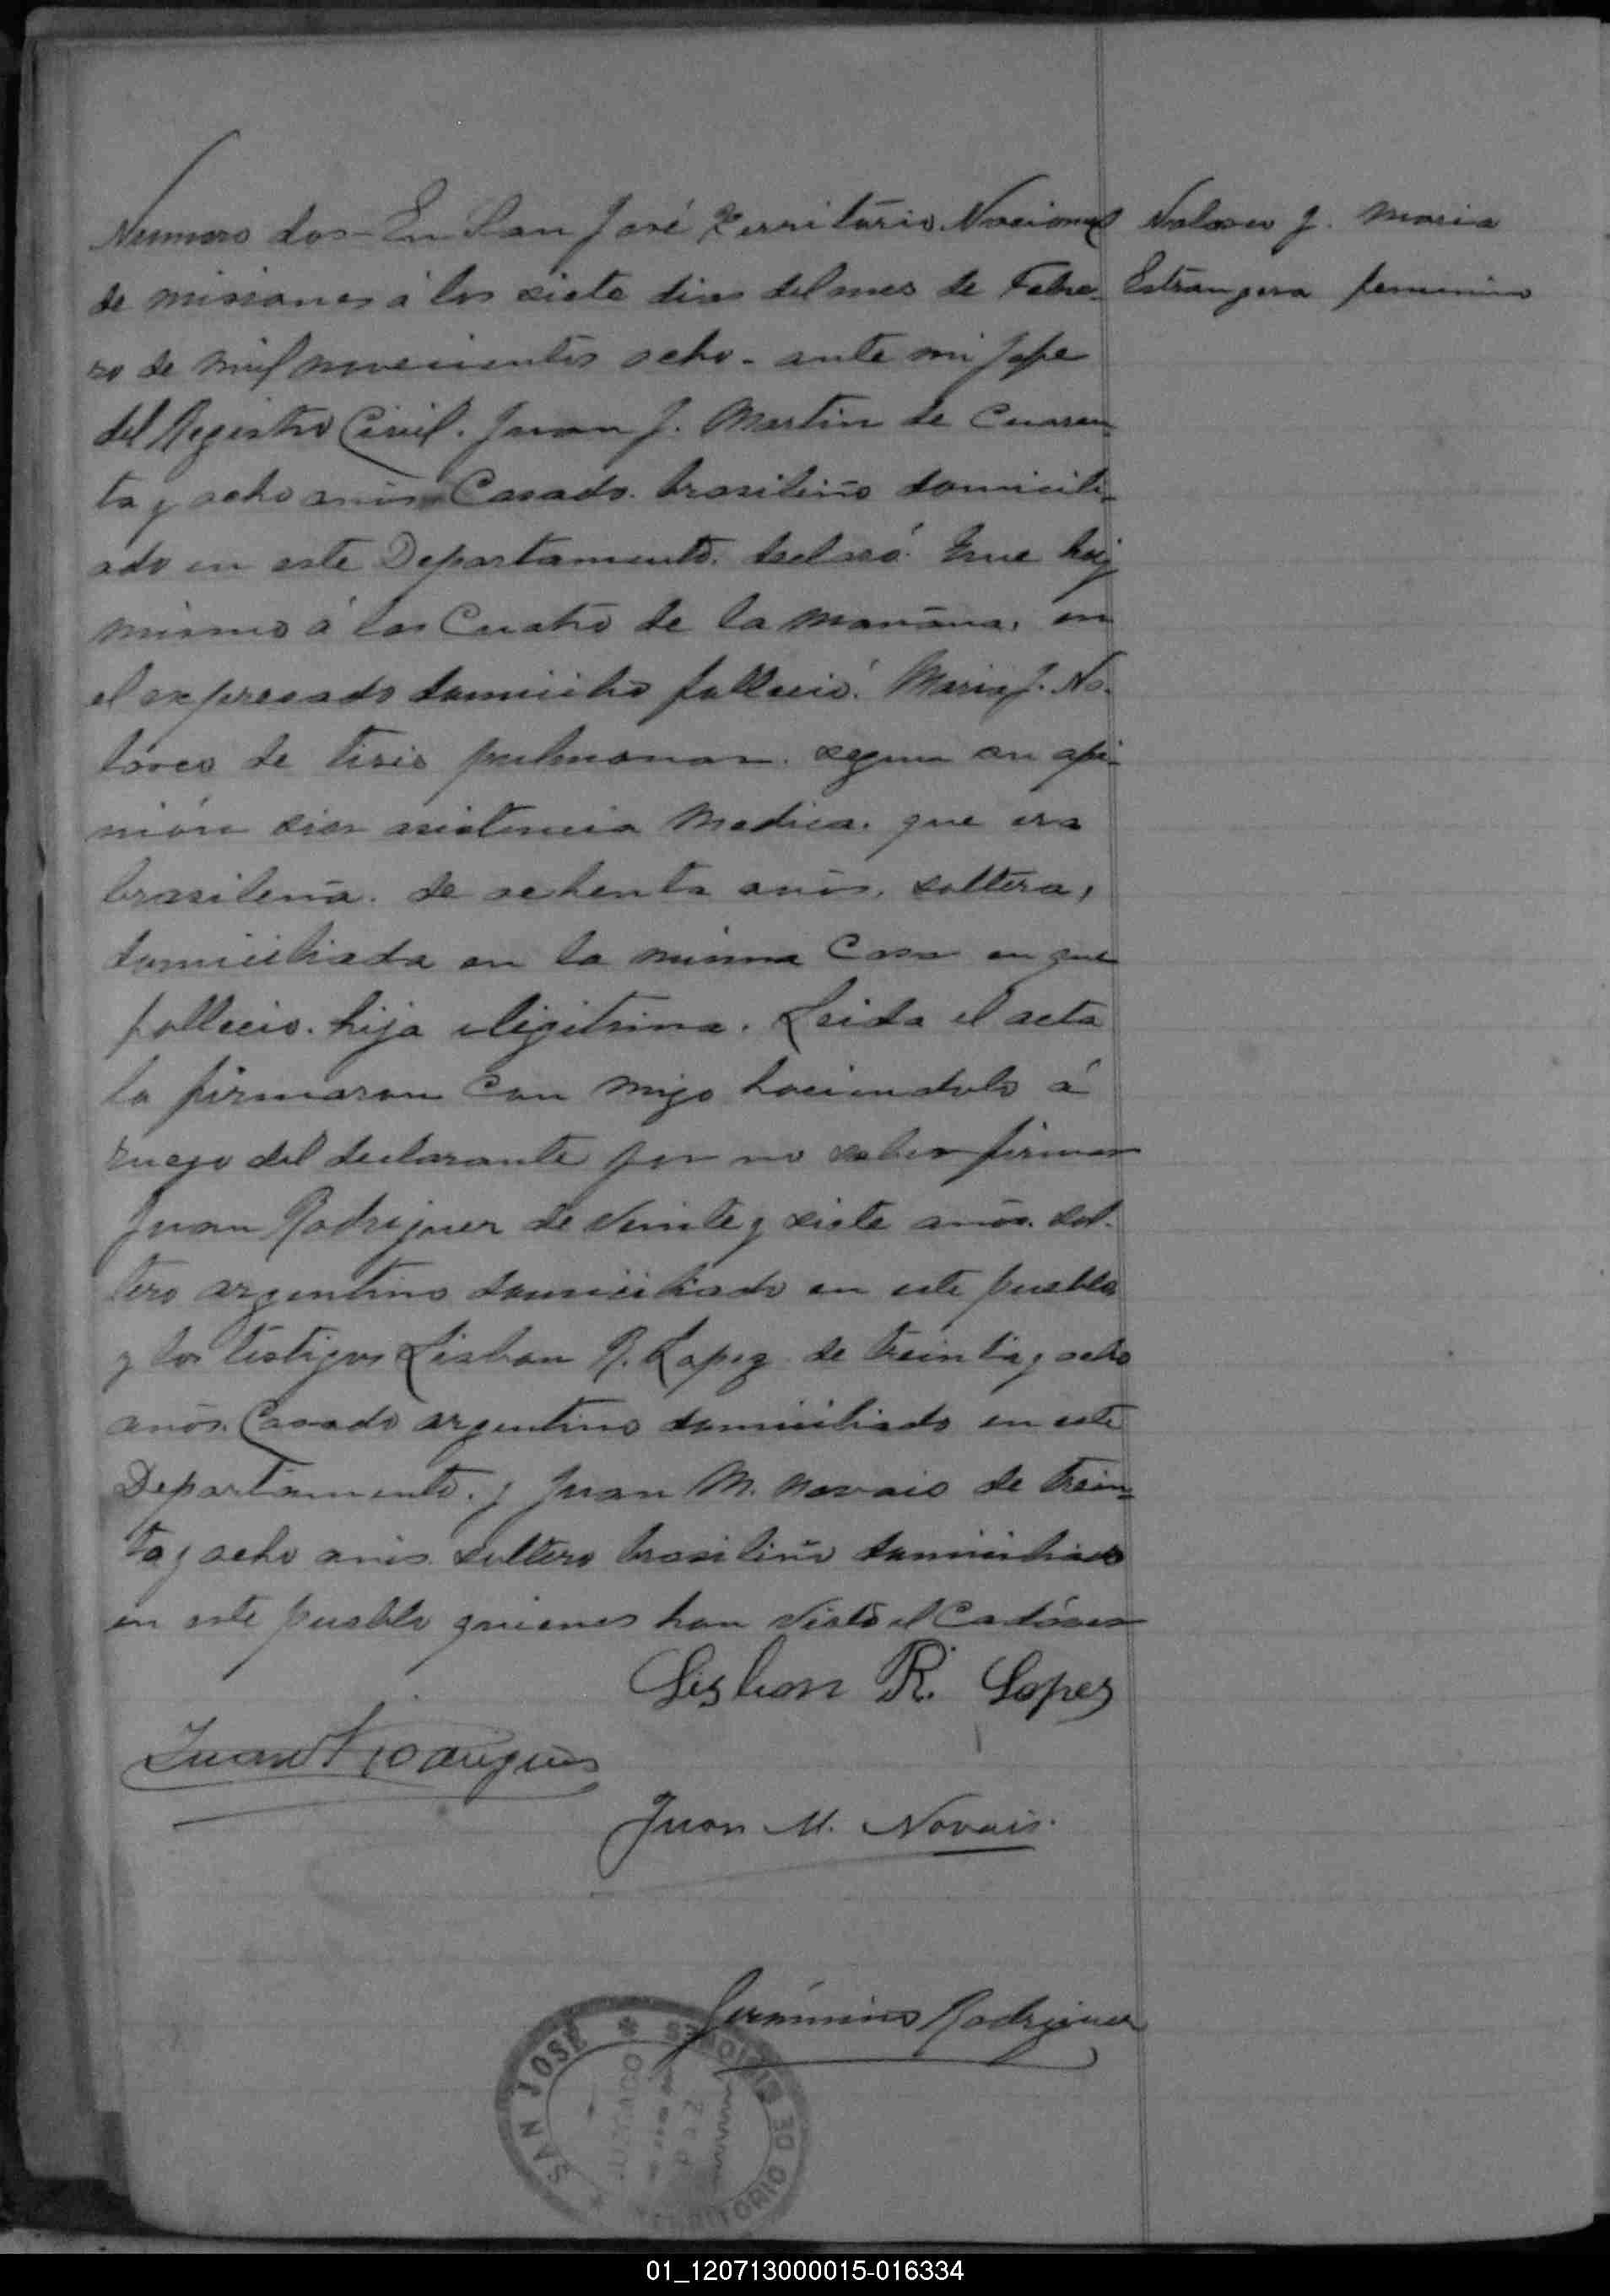 Numero dos - En San José Territorio Nacional
de misiones á los siete dias del mes de Febre-
ro de mil novecientos ocho - ante mi Jefe
del Registro Civil. Juan J. Martin de Cuaren-
ta y ocho años Casado. brasileño domicili-
ado en este Departamento. declaró. Que hoy
mismo á las Cuatro de la mañana, en
el expresado domicilio falleció. Maria J. No-
de tisis pulmonar. segun su opi-
nión sin asistencia medica. que era
brasileña. de ochenta años. soltera,
domiciliada en la misma Casa en que
fallecio. hija iligitima. Leida el acta
la firmaron Con migo haciendolo á
ruego del declarante por no saber firmar
Juan Rodriguez de Veinte y siete años. sol-
tero argentino domiciliado en este pueblo
y los testigos Lisbon R. Lopez de treinta y ocho
años. Casado argentino domiciliado en este
Departamento. y Juan M. Novais de trein-
ta y ocho años soltero brasileño domiciliado
en este pueblo quienes han Visto el Cadáver
Maria
Estrangera femenino
Lisbon R. Lopez
Juan Rodrigues
Juan M. Novais.
Gerónimo Rodriguez
SAN JOSÉ * TERRITORIO DE MISIONES *
01_120713000015-016334